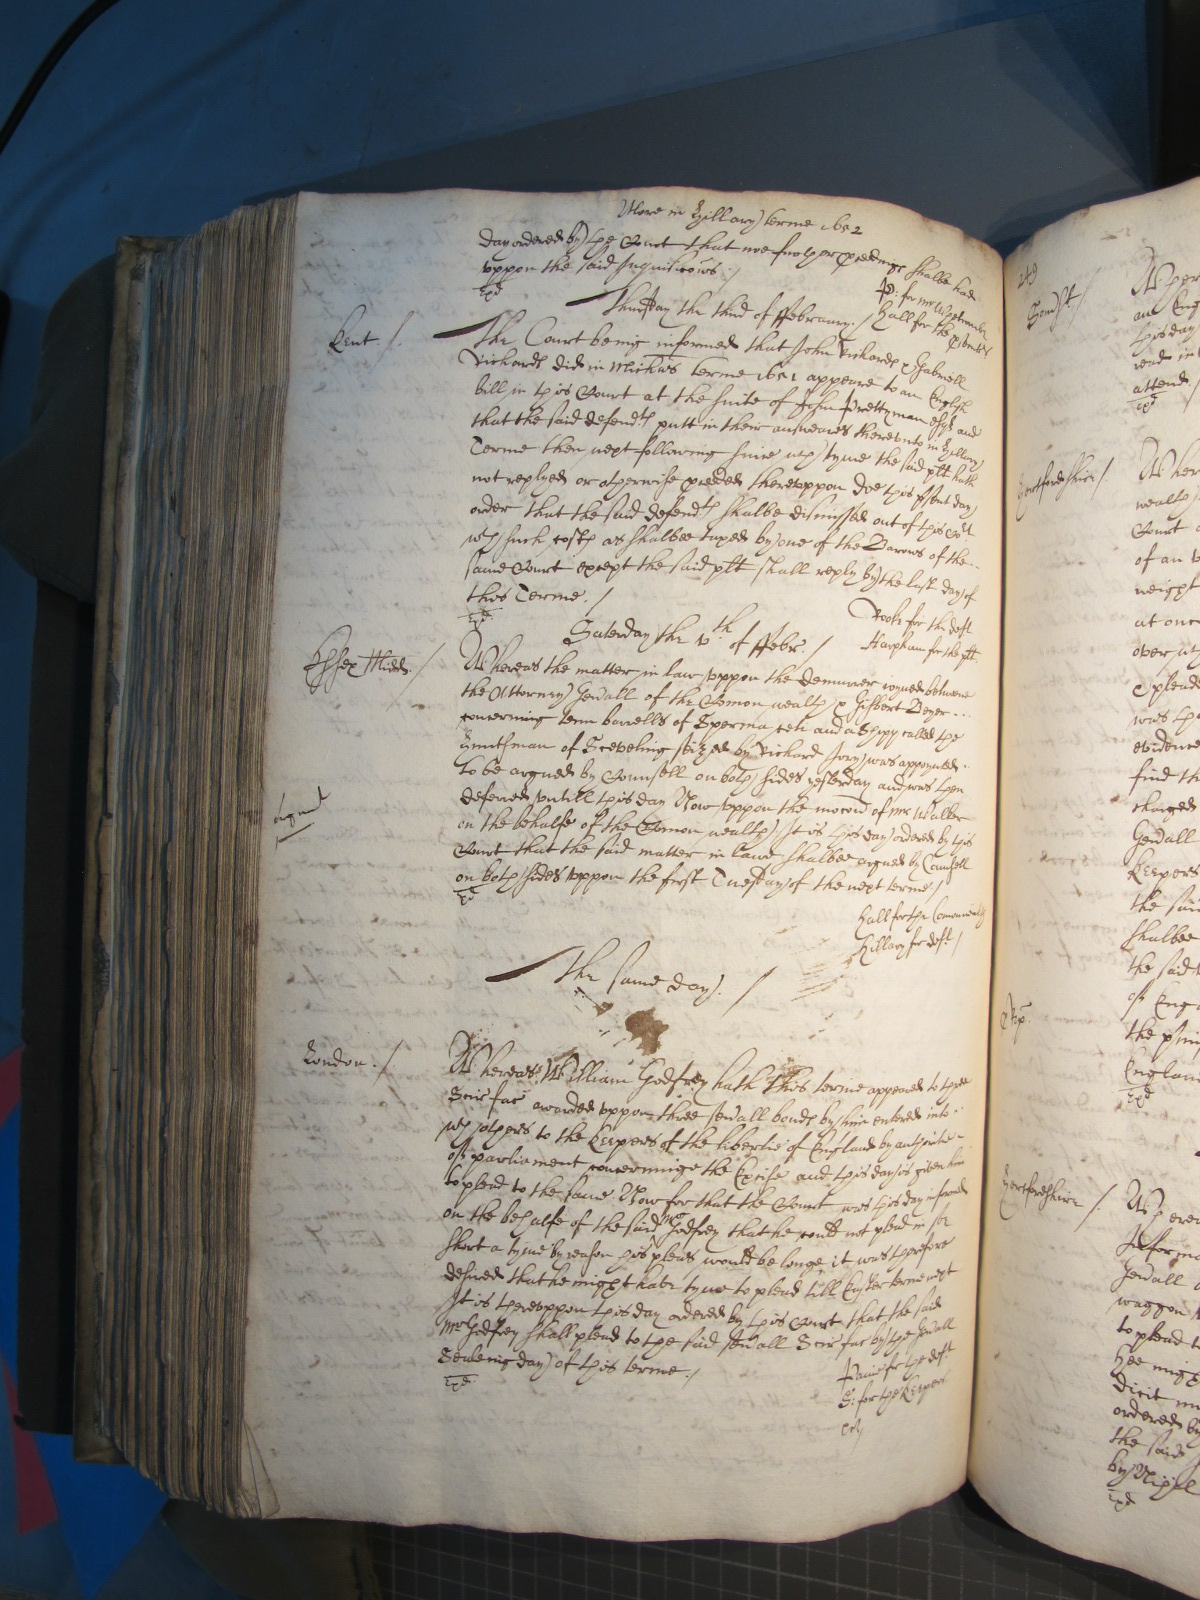 More in Hillary terme 1652
day ordered by the Court that noe further proceedings shalbe had
uppon the said Inquisicions :/
Exd
P: for mr Westcombe
Thursday the third of ffebruary. / Hall for the
Kent /.
The Court being informed that John Richards & Gabriell
Richards did in Michas terme 1651 appeare to an English
bill in this Court at the suite of John Prettyman esqr and
that the said defendts putt in their answeares thereunto in Hillary
Terme then next following since wch tyme the said plt hath
not replyed or otherwise proceeded thereuppon doe this psent day
order that the said defendts shalbe dismissed out of this Cort
wth such costs as shalbee taxed by one of the Barons of the
same Court except the said plt shall reply by the last day of
this Terme. /
Exd
Rooke for the deft
Saterday the vth of ffebr. / Harpham for the plt
Essex Midd. /
Whereas the matter in law uppon the demurrer joyned betweene
the Attorney Gen'all of the Comon wealth & Gisbert Beyer
concerning tenn barrells of Sperma ceti and a shipp called the
of Sceveling seized by Richard Ivory was appoynted
to be argued by Counsell on both sides yesterday and was then
deferred untill this day Now uppon the mocon of mr Waller
on the behalfe of the Comon wealth It is this day ordered by this
Court that the said matter in lawe shalbee argued by Councell
on both sides uppon the first Tuesday of the next terme /
Exd
Hall for the Comonwealth
Hillary for deft /
The same day. /
London. /
Whereas William Godfrey hath this terme appeared to three
Scire fac awarded uppon three sev'all bonds by him entered into
wth others to the Keepers of the libertie of England by authoritie
of parliament concerninge the Excise and this day is given him
to plead to the same Now for that the Court was this day informed
on the behalfe of the said mr Godfrey that he could not plead in soe
short a tyme by reason his pleas would be longe it was therefore
desired that he might have tyme to plead till Easter terme next
It is thereuppon this day ordered by this Court that the said
mr Godfrey shall plead to the said sev'all Scire fac by the Gen'all
Sealeing day of this terme :/
Exd
for the deft
S: for the Keepers
249
Somst /
Hertfordshire /
Whereas
wealth
Court
of an
weight
at once
over
plead
was
evidence
find th
charged
Gen'all
Keepers
the said
shalbee
the said
of Eng
the
England
Exd
Hertfordshire /
Whereas
Informa
Gen'all
waggon
to plead
hee migh
dicit
ordered by
the said
by Nihil
Exd